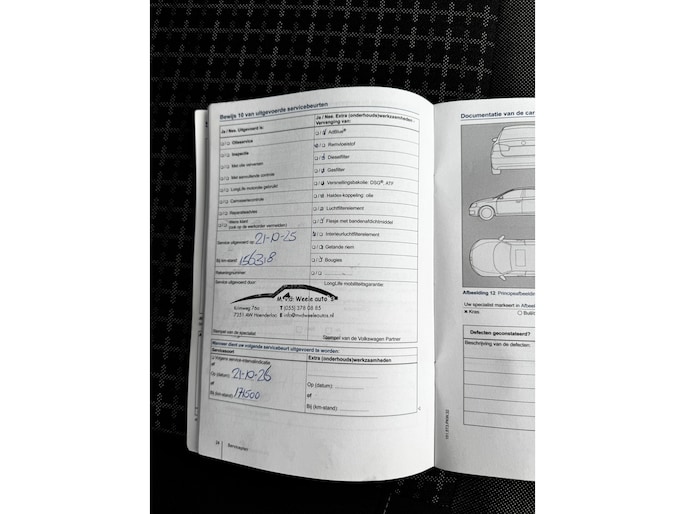 Bewijs 10 van uitgevoerde servicebeurten
Ja / Nee, Uitgevoerd is:
Ja / Nee, Extra (onderhouds)werkzaamheden
Vervanging van:
Olieservice
Inspectie
Met olie verversen
Met aanvullende controle
LongLife-motorolie gebruikt
Carrosseriecontrole
Reparatieadvies
Wens klant
(ook op de werkorder vermelden)
AdBlue®
Remvloeistof
Dieselfilter
Gasfilter
Versnellingsbakolie: DSG®, ATF
Haldex-koppeling: olie
Luchtfilterelement
Flesje met bandenafdichtmiddel
Interieurluchtfilterelement
Getande riem
Bougies
Service uitgevoerd op 21-10-25
Bij km-stand: 156318
Rekeningnummer:
Service uitgevoerd door:
LongLife mobiliteitsgarantie:
M. v/d. Weele auto's
7351 AW Hoenderloo
T (055) 378 08 85
E info@mvdweeleautos.nl
Stempel van de specialist
Stempel van de Volkswagen Partner
Wanneer dient uw volgende servicebeurt uitgevoerd te worden:
Servicebeurt
Extra (onderhouds)werkzaamheden
Volgens service-intervalindicatie
of
Op (datum): 21-10-26
of
Bij (km-stand): 171500
Op (datum):
of
Bij (km-stand):
24
Serviceplan
Documentatie van de car
Afbeelding 12 Principeafbeelding
Uw specialist markeert in Afbeel
Kras
Defecten geconstateerd?
Beschrijving van de defecten: